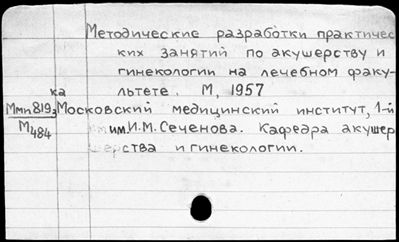 Методические разработки практичес
ких занятий по акушерству и
гинекологии на лечебном факу-
льтете. М, 1957
ка
Ммп819, Московский медицинский институт, 1-й
М484 им. И.М. Сеченова. Кафедра акушер
ства и гинекологии.